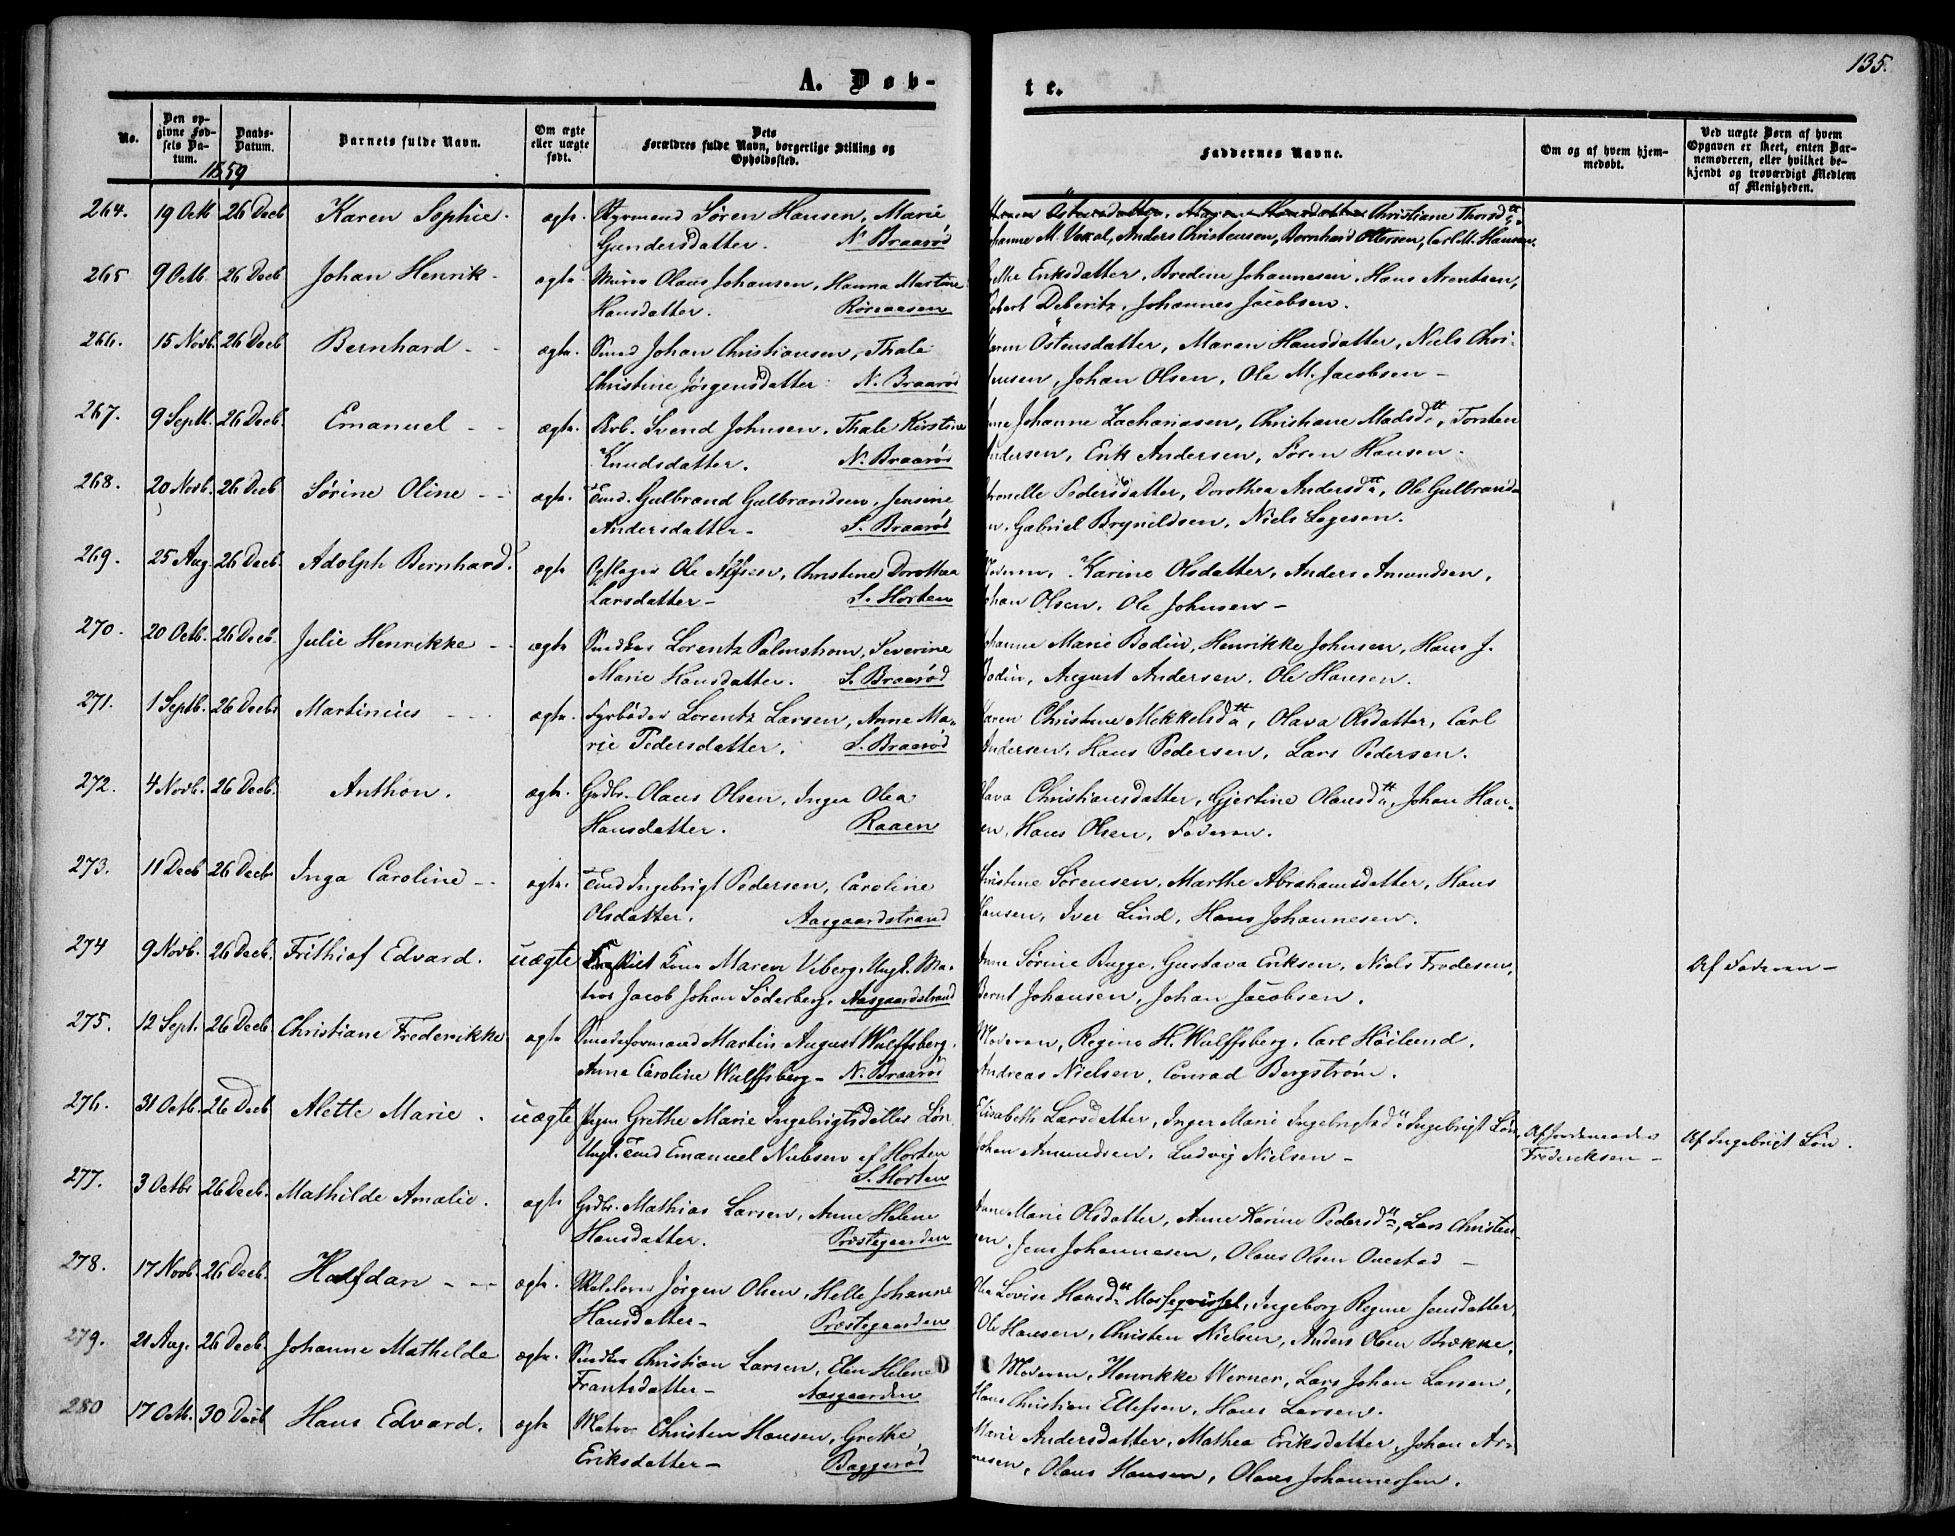 135.
A. Døb-
te.
No.
Den opgivne Fødsels Datum.
Daabs-Datum.
Barnets fulde Navn.
Om ægte eller uægte født.
Dets
Forældres fulde Navn, borgerlige Stilling og
Opholdssted.
Faddernes Navne.
Om og af hvem hjemmedøbt.
Ved uægte Børn af hvem
Opgaven er skeet, enten Barnemoderen, eller hvilket bekjendt og troværdigt Medlem
af Menigheden.
1859
264. 19 Octb 26 Decb Karen Sophie. ægte. Styrmand Søren Hansen, Marie
Gundersdatter. N. Braarød
Östensdatter, Maren Hansdatter Christiane Thorsdtt
Johanne M. Vexal, Anders Christensen, Bernhard Ottersen, Carl M. Hansen.
265 9 Octb. 26 Decb Johan Henrik. ægte. Murer Olaus Johansen, Hanna Martine
Hansdatter. Røreaasen
Eriksdatter, Bredine Johannesen, Hans Arentsen,
Robert Deberitz, Johannes Jacobsen.
266. 15 Novb. 26 Decb Bernhard ægte. Smed Johan Christiansen, Thale
Christine Jørgensdatter. N. Braarød
Karen Östensdatter, Maren Hansdatter, Niels Chri-
Johan Olsen, Ole M. Jacobsen
267. 9 Septb. 26 Decb. Emanuel ægte. Arb. Svend Johnsen, Thale Kirstine
Knudsdatter. N. Braarød
Johanne Zachariasen, Christiane Madsdtt, Torsten
Andersen, Erik Andersen, Søren Hansen.
268. 20 Novb. 26 Decb Sørine Oline ægte. Tmd. Gulbrand Gulbrandsen, Jensine
Andersdatter S. Braarød
Petronelle Pedersdatter, Dorothea Andersdtt, Ole Gulbrands-
en, Gabriel Brynildsen, Niels Legesen.
269. 25 Aug. 26 Decb. Adolph Bernhard. ægte Opslager Ole Nilsen, Christine Dorothea
Larsdatter S. Horten
Moderen, Karine Olsdatter, Anders Amundsen,
Johan Olsen, Ole Johnsen
270. 20 Octb. 26 Decb. Julie Henrikke ægte Lorentz Palmstrom, Severine
Marie Hansdatter. S. Braarød
Johanne Marie Bodin, Henrikke Johnsen, Hans J.
Bodin, August Andersen, Ole Hansen.
271. 1 Septb. 26 Decbr Martinius ægte. Fyrbøder Lorentz Larsen, Anne Ma-
rie Pedersdatter. S. Braarød
Karen Christine Mekkelsdtt, Olava Olsdatter, Carl
Andersen, Hans Pedersen, Lars Pedersen.
272. 4 Novb. 26 Decb. Anthon. ægte. Grdbr. Olaus Olsen, Inger Olea
Hansdatter. Raaen
Olava Christiansdatter, Gjertine Olausdtt, Johan Han-
sen, Hans Olsen, Faderen.
273. 11 Decb 26 Decbr Inga Caroline ægte. Tmd Ingebrigt Pedersen, Caroline
Olsdatter. Aasgaardstrand
Christine Sørensen, Marthe Abrahamsdatter, Hans
Hansen, Iver Lind, Hans Johannesen.
274 9 Novb. 26 Decb. Frithiof Edvard. uægte Kone Maren Viberg, Ungk. Ma-
tros Jacob Johan Söderberg, Aasgaardstrand
Anne Sørine Bugge, Gustava Eriksen, Niels Frodesen,
Bernt Johansen, Johan Jacobsen.
Af Faderen
275. 12 Sept. 26 Decb Christiane Frederikke ægte Smedeformand Martin August Wulffsberg,
Anne Caroline Wulffsberg N. Braarød
Moderen, Regine H. Wulffsberg, Carl Höilund,
Andreas Nielsen, Conrad Bergstrøm.
276. 31 Octb. 26 Decb Alette Marie. uægte Pigen Grethe Marie Ingebrigtsdatter Løn,
Ungk. Tmd Emanuel Nielsen af Horten
S. Horten
Elisabeth Larsdatter, Inger Marie Ingebrigtsd. Ingebrigt Løn,
Johan Amundsen, Ludvig Nielsen
Af Jordemoder
Frederiksen
Af Ingebrigt Løn.
277. 3 Octbr 26 Decb. Mathilde Amalie. ægte Grdbr. Mathias Larsen, Anne Helene
Hansdatter. Præstegaarden
Anne Marie Olsdatter, Anne Karine Pedersdtt, Lars Christen-
sen, Jens Johannesen, Olaus Olsen Onestad
278. 17 Novb. 26 Decb. Halfdan ægte. Jørgen Olsen, Helle Johanne
Hansdatter Præstegaarden
Lovise Hansdtt Ingeborg Regine Jensdatter,
Ole Hansen, Christen Nielsen, Anders Olsen Brække.
279. 21 Aug. 26 Decb. Johanne Mathilde ægte. Christian Larsen, Elen Helene
Frantsdatter Aasgaarden
Moderen, Henrikke Werner, Lars Johan Larsen,
Hans Christian Ellefsen, Hans Larsen.
280 17 Octb. 30 Decb Hans Edvard. ægte Matros Christen Hansen, Grethe
Eriksdatter Baggerød
Marie Andersdatter, Mathea Eriksdatter, Johan Ar-
nesen, Olaus Hansen, Olaus Johannessen.